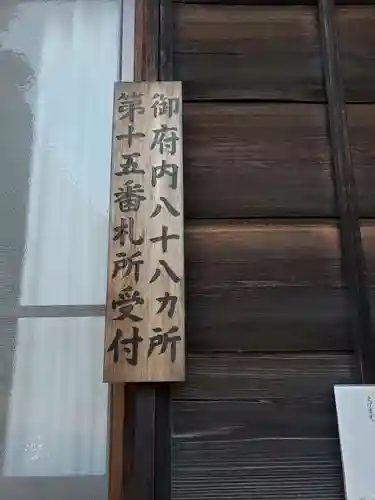 御府内八十八カ所
第十五番札所受付